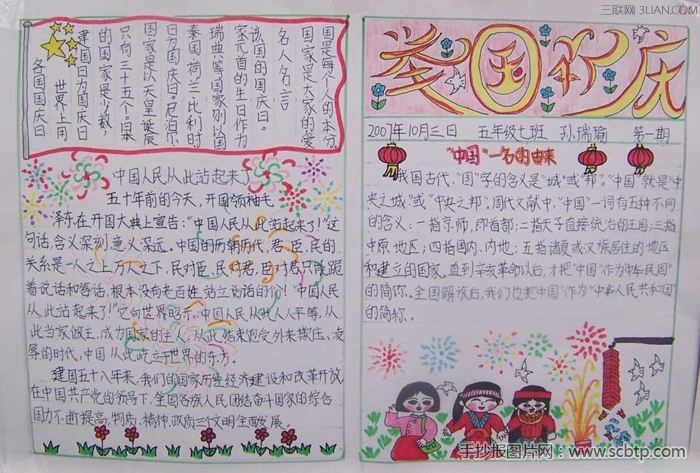 各国国庆日
世界上用
建国日为国庆日
的国家是少数
只有三十五个。日本
国家是以天皇诞辰
日为国庆日;尼泊尔
泰国、荷兰、比利时
瑞典等国家别以国
家元首的生日作为
该国的国庆日。
名人名言
国家是大家的爱
国是每个人的本分
中国人民从此站起来了
五十年前的今天,开国领袖毛
泽东在开国大典上宣告:“中国人民从此站起来了!”这
句话,含义深刻,意义深远。中国的历朝历代,君、臣、民的
关系是一人之上万人之下,民对臣、民对君、臣对君只有跪
着说话和答话,根本没有老百姓站立说话的份!“中国人民
从此站起来了!”它向世界昭示,中国人民从此人人平等,从
此当家做主,成为国家的主人,从此结束饱受外来欺压、凌
辱的时代,中国从此屹立于世界的东方。
建国五十八年来,我们的国家历经经济建设和改革开放
在中国共产党的领导下,全国各族人民团结奋斗国家的综合
国力不断提高,物质、精神、政质三个文明全面发展。
举国欢庆
2007年10月三日 五年级七班 孙瑞瑜 第一期
“中国”一名的由来
我国古代,“国”字的含义是“城”或“邦”。“中国”就是“中
央之城”或“中央之邦”。周代文献中,“中国”一词有五种不同
的含义:一指京师,即首都;二指天子直接统治的王国;三指
中原地区;四指国内、内地;五指诸夏或汉族居住的地区
和建立的国家。直到辛亥革命以后,才把“中国”作为“中华民国”
的简称。全国解放后,我们也把“中国”作为“中华人民共和国”
的简称。
三联网 3LIAN.COM
手抄报图片网:www.scbtp.com